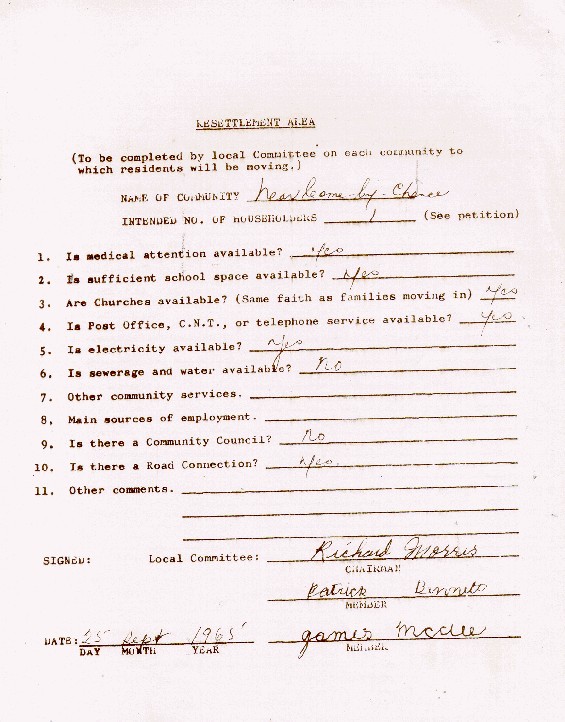 RESETTLEMENT AREA
(To be completed by local Committee on each community to
which residents will be moving.)
NAME OF COMMUNITY Near Come-by-Chance
INTENDED NO. OF HOUSEHOLDERS 1 (See petition)
1. Is medical attention available? Yes
2. Is sufficient school space available? Yes
3. Are Churches available? (Same faith as families moving in) Yes
4. Is Post Office, C.N.T., or telephone service available? Yes
5. Is electricity available? Yes
6. Is sewerage and water available? No
7. Other community services.
8. Main sources of employment.
9. Is there a Community Council? No
10. Is there a Road Connection? Yes
11. Other comments.
SIGNED: Local Committee: Richard Morris
CHAIRMAN
Patrick
MEMBER
DATE: 25 Sept 1965 James McCue
DAY MONTH YEAR MEMBER